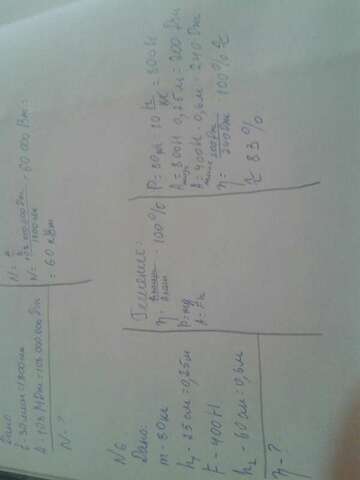 Дано:
t = 30 мин = 1800 сек
A = 108 МДж = 108 000 000 Дж
N = ?
N = A/t
N = 108 000 000 Дж / 1800 сек = 60 000 Вт =
= 60 кВт
N6
Дано:
m = 80 кг
h₁ = 25 см = 0,25 м
F = 400 Н
h₂ = 60 см = 0,6 м
η = ?
Решение:
η = Aполезн / Aполн · 100 %
P = mg
A = Fh
P = 80 кг · 10 Н/кг = 800 Н
A = 800 Н · 0,25 м = 200 Дж
A = 400 Н · 0,6 м = 240 Дж
η = 200 Дж / 240 Дж · 100 % ≈
≈ 83 %